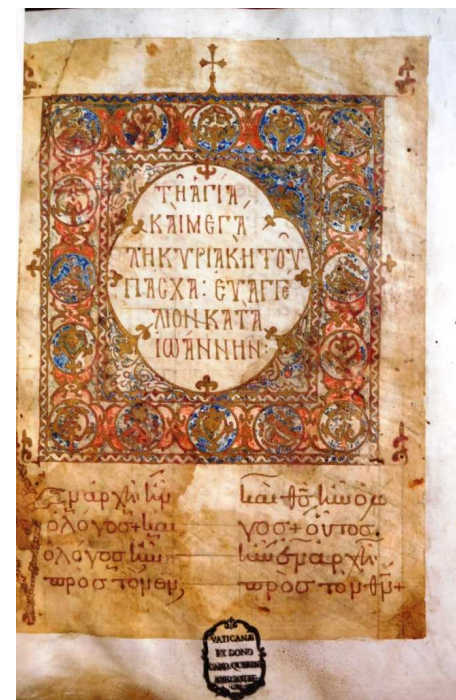 ΤΗ ΑΓΙΑ
ΚΑΙ ΜΕΓΑ
ΛΗ ΚΥΡΙΑΚΗ ΤΟΥ
ΠΑСΧΑ: ΕΥΑΓΓΕ
ΛΙΟΝ ΚΑΤΑ
ΙΩΑΝΝΗΝ:
Ἐν ἀρχῆ ἦν
ὁ λόγος + καὶ
ὁ λόγος ἦν
πρὸς τὸν θν̅
καὶ θς̅ ἦν ὁ λο
γος + οὗτος
ἦν ἐν ἀρχῆ
πρὸς τὸν θν̅ +
VATICANAE
EX DONO
CARD. QUIRINI